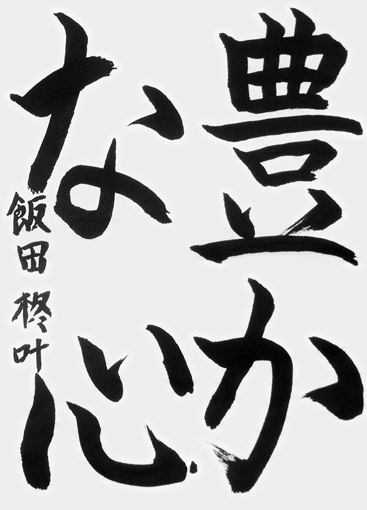 豊か
な心
飯田 柊叶